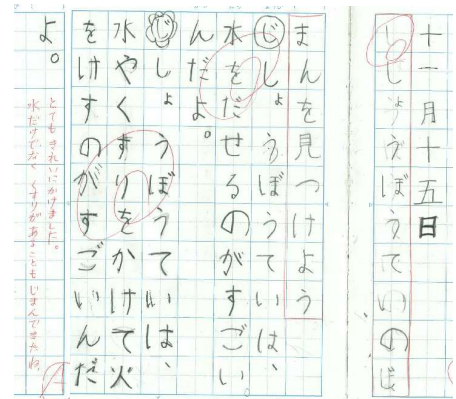 十一月十五日
しょうぼうていのじ
まんを見つけよう
じしょうぼうていは、
水をだせるのがすごい
んだよ。
じしょうぼうていは、
水やくすりをかけて火
をけすのがすごいんだ
よ。
とてもきれいにかけました。
水だけでなくくすりがあることもじまんできたね。